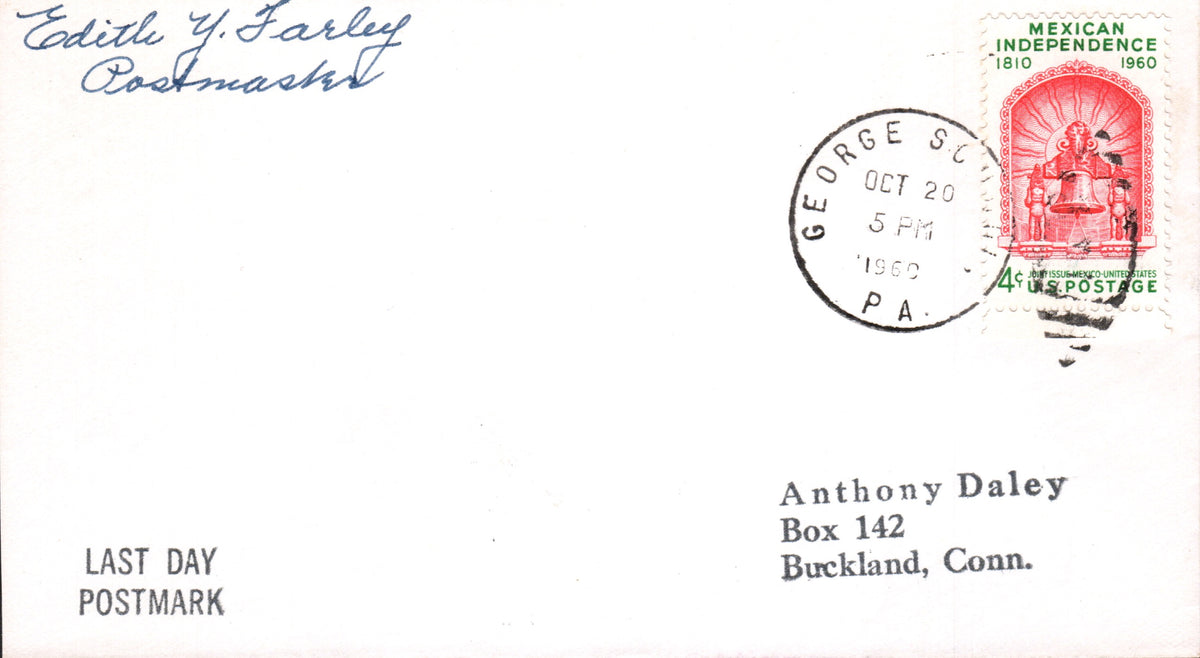 Edith Y. Farley
Postmaster
MEXICAN
INDEPENDENCE
1810 1960
GEORGE
OCT 20
5 PM
1960
PA.
4¢ JOINT ISSUE-MEXICO-UNITED STATES
U.S. POSTAGE
Anthony Daley
Box 142
Buckland, Conn.
LAST DAY
POSTMARK